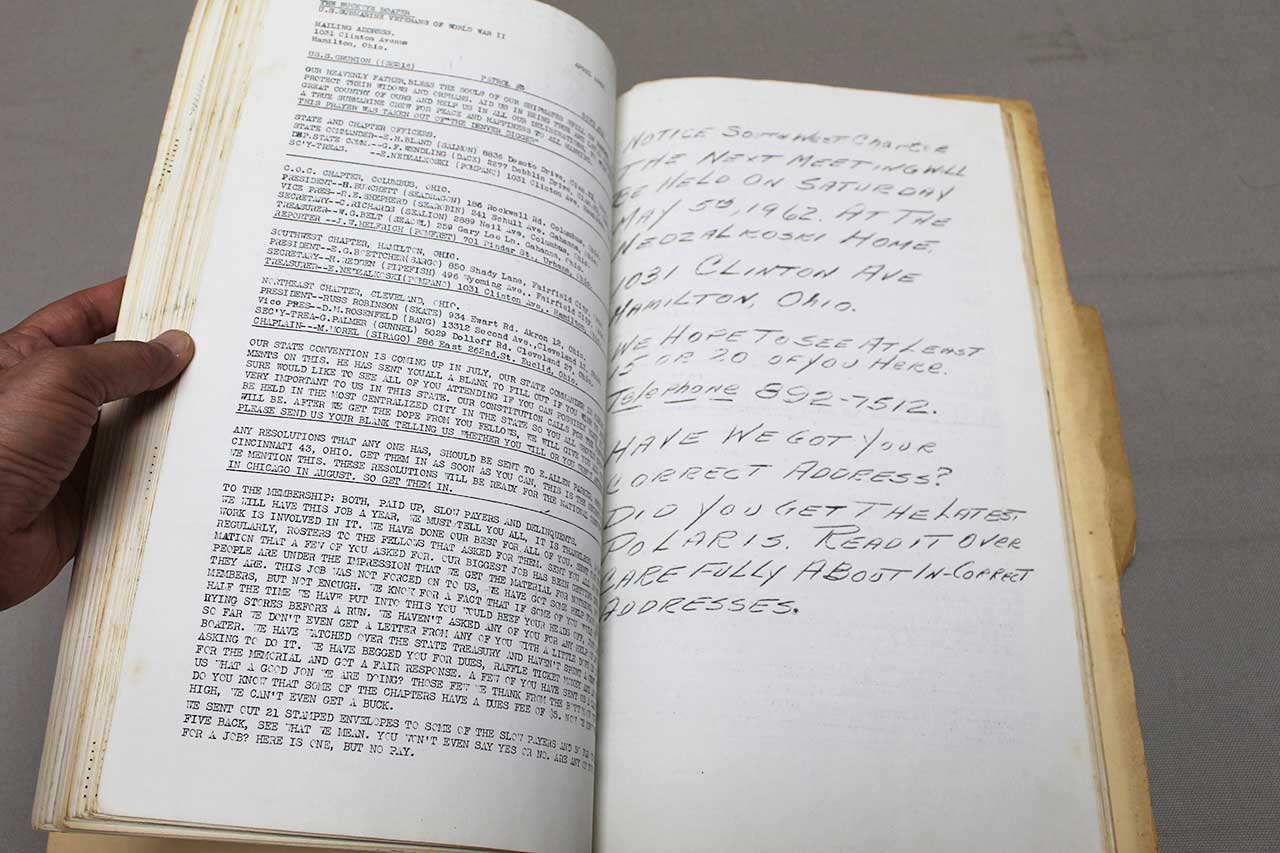 THE BUCKEYE BOATER
U.S.SUBMARINE VETERANS OF WORLD WAR II
MAILING ADDRESS.
1031 Clinton Avenue
Hamilton, Ohio.
US.S.GRUNION ((SS216)
PATROL #3
OUR HEAVENLY FATHER, BLESS THE SOULS OF OUR SHIPMATES STILL ON
PROTECT THEIR WIDOWS AND ORPHANS. AID US IN BEING TRUE
GREAT COUNTRY OF OURS AND HELP US IN ALL OUR DELIBERATIONS
A TRUE SUBMARINE CREW FOR PEACE AND HAPPINESS TO ALL
THIS PRAYER WAS TAKEN OUT OF "THE DENVER DIGGER"
STATE AND CHAPTER OFFICERS.
STATE COMMANDER--E.H.BLAND (SALMON) 8836 Desoto Drive,
DEP.STATE COMM.--G.F.WENDLING (DACE) 2277 Drive,
SC'Y-TREAS. --E.NEDZALKOSKI (POMPANO) 1031 Clinton Ave.
C.O.C. CHAPTER, COLUMBUS, OHIO.
PRESIDENT--H.BURCHETT (SEADRAGON) 186 Rockwell Rd.
VICE PRES--R.E.SHEPHERD (SEAROBIN) 241 Schull Ave. Gahanna,
SECRETARY--C.RICHARDS (SEALION) 2889 Neil Ave, Columbus,
TREASURER--W.G.BELT (SEAOWL) 259 Gary Lee Ln. Gahanna, Ohio
REPORTER --J.G.HELFRICH (POMFRET) 701 Pindar St., Urbana,
SOUTHWEST CHAPTER, HAMILTON, OHIO.
PRESIDENT--E.G.BOETTCHER(SARGO) 850 Shady Lane, Fairfield City,
SECRETARY--H.REDDEN (PIPEFISH) 496 Wyoming Ave., Fairfield City,
TREASURER--E.NEDZALKOSKI(POMPANO) 1031 Clinton Ave., Hamilton,
NORTHEAST CHAPTER, CLEVELAND, OHIO.
PRESIDENT--RUSS ROBINSON (SKATE) 934 Ewart Rd. Akron 12, Ohio
Vice PRES--D.M.ROSENFELD (BANG) 13312 Second Ave.,Cleveland
SEC'Y-TREA-G.PALMER (GUNNEL) 5029 Dolloff Rd. Cleveland 27, Ohio.
CHAPLAIN---M.MOREL (SIRAGO) 286 East 262nd.St. Euclid, Ohio.
OUR STATE CONVENTION IS COMING UP IN JULY, OUR STATE COMMANDER IS
MENTS ON THIS. HE HAS SENT YOUALL A BLANK TO FILL OUT IF YOU
SURE WOULD LIKE TO SEE ALL OF YOU ATTENDING IF YOU CAN POSSIBLY
VERY IMPORTANT TO US IN THIS STATE. OUR CONSTITUTION CALLS FOR THE
BE HELD IN THE MOST CENTRALIZED CITY IN THE STATE SO YOU ALL
WILL BE. AFTER WE GET THE DOPE FROM YOU FELLOWS, WE WILL GIVE
PLEASE SEND US YOUR BLANK TELLING US WHETHER YOU WILL OR YOU
ANY RESOLUTIONS THAT ANY ONE HAS, SHOULD BE SENT TO E.ALLEN
CINCINNATI 43, OHIO. GET THEM IN AS SOON AS YOU CAN, THIS IS THE
WE MENTION THIS. THESE RESOLUTIONS WILL BE READY FOR THE NATIONAL
IN CHICAGO IN AUGUST. SO GET THEM IN.
TO THE MEMBERSHIP: BOTH, PAID UP, SLOW PAYERS AND DELINQUENTS.
WE WILL HAVE THIS JOB A YEAR, WE MUST TELL YOU ALL, IT IS THANKLESS
WORK IS INVOLVED IN IT. WE HAVE DONE OUR BEST FOR ALL OF YOU. SENT
REGULARLY, ROSTERS TO THE FELLOWS THAT ASKED FOR THEM. SENT YOU ALL
MATION THAT A FEW OF YOU ASKED FOR. OUR BIGGEST JOB HAS BEEN GETTING
PEOPLE ARE UNDER THE IMPRESSION THAT WE GET THE MATERIAL FOR NOTHING
THEY ARE. THIS JOB WAS NOT FORCED ON TO US, WE HAVE GOT SOME HELP
MEMBERS, BUT NOT ENOUGH. WE KNOW FOR A FACT THAT IF SOME OF YOU
HALF THE TIME WE HAVE PUT INTO THIS YOU WOULD BEEF YOUR HEADS OFF,
RYING STORES BEFORE A RUN. WE HAVEN'T ASKED ANY OF YOU FOR ANY HELP
SO FAR WE DON'T EVEN GET A LETTER FROM ANY OF YOU WITH A LITTLE
BOATER. WE HAVE WATCHED OVER THE STATE TREASURY AND HAVEN'T SPENT A
ASKING TO DO IT. WE HAVE BEGGED YOU FOR DUES, RAFFLE TICKET MONEY AND
FOR THE MEMORIAL AND GOT A FAIR RESPONSE. A FEW OF YOU HAVE SENT US
US WHAT A GOOD JON WE ARE DOING? THOSE FEW WE THANK FROM THE BOTTOM
DO YOU KNOW THAT SOME OF THE CHAPTERS HAVE A DUES FEE OF $5.
HIGH, WE CAN'T EVEN GET A BUCK.
WE SENT OUT 21 STAMPED ENVELOPES TO SOME OF THE SLOW PAYERS AND
FIVE BACK, SEE WHAT WE MEAN. YOU WON'T EVEN SAY YES OR NO. ARE ANY OF
FOR A JOB? HERE IS ONE, BUT NO PAY.
NOTICE SOUTHWEST CHAPTER
THE NEXT MEETING WILL
BE HELD ON SATURDAY
MAY 5TH, 1962. AT THE
NEDZALKOSKI HOME.
1031 CLINTON AVE
HAMILTON, OHIO.
WE HOPE TO SEE AT LEAST
15 OR 20 OF YOU HERE.
Telephone 892-7512.
HAVE WE GOT YOUR
CORRECT ADDRESS?
DID YOU GET THE LATEST
POLARIS. READ IT OVER
CAREFULLY ABOUT IN-CORRECT
ADDRESSES.